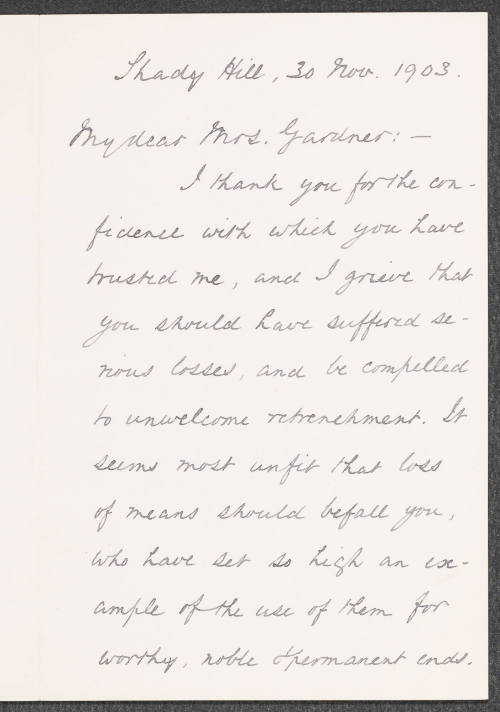 Shady Hill, 30 Nov. 1903.
My dear Mrs. Gardner: —
I thank you for the con-
fidence with which you have
trusted me, and I grieve that
you should have suffered se-
rious losses, and be compelled
to unwelcome retrenchment. It
seems most unfit that loss
of means should befall you,
who have set so high an ex-
ample of the use of them for
worthy, noble & permanent ends.